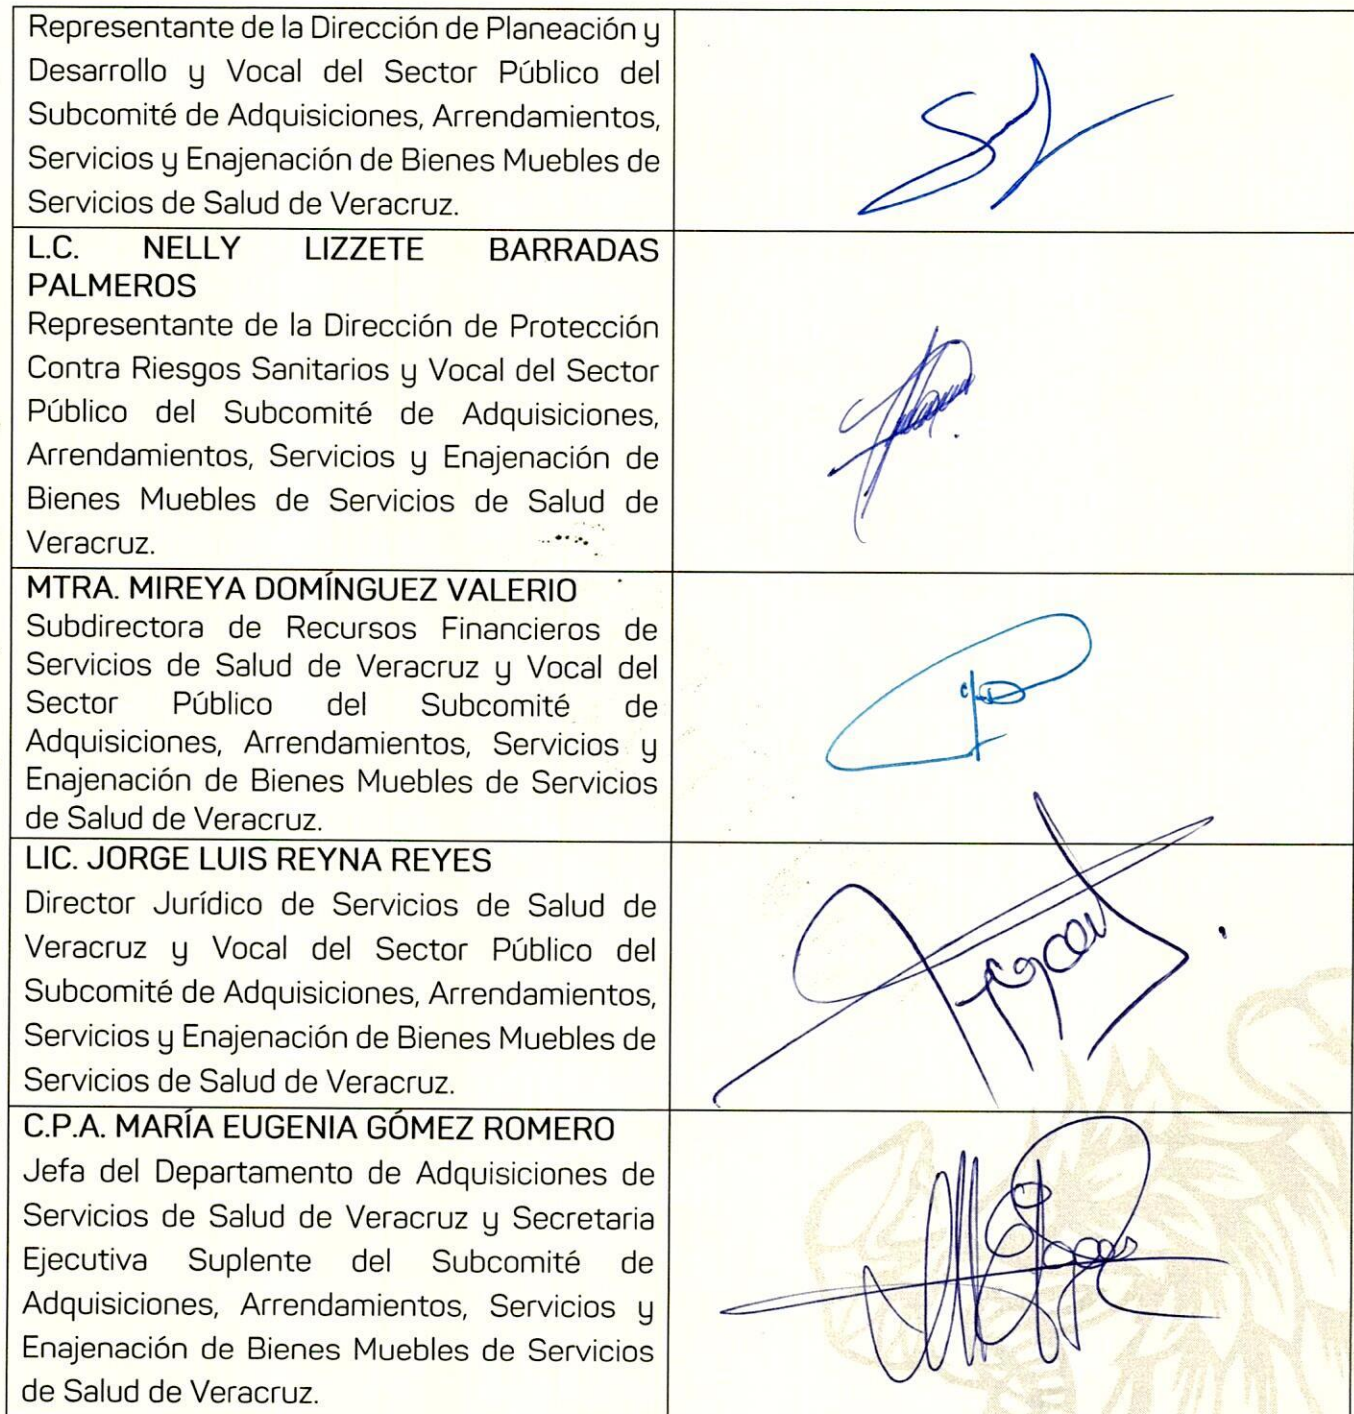 Representante de la Dirección de Planeación y
Desarrollo y Vocal del Sector Público del
Subcomité de Adquisiciones, Arrendamientos,
Servicios y Enajenación de Bienes Muebles de
Servicios de Salud de Veracruz.
L.C. NELLY LIZZETE BARRADAS
PALMEROS
Representante de la Dirección de Protección
Contra Riesgos Sanitarios y Vocal del Sector
Público del Subcomité de Adquisiciones,
Arrendamientos, Servicios y Enajenación de
Bienes Muebles de Servicios de Salud de
Veracruz.
MTRA. MIREYA DOMÍNGUEZ VALERIO
Subdirectora de Recursos Financieros de
Servicios de Salud de Veracruz y Vocal del
Sector Público del Subcomité de
Adquisiciones, Arrendamientos, Servicios y
Enajenación de Bienes Muebles de Servicios
de Salud de Veracruz.
LIC. JORGE LUIS REYNA REYES
Director Jurídico de Servicios de Salud de
Veracruz y Vocal del Sector Público del
Subcomité de Adquisiciones, Arrendamientos,
Servicios y Enajenación de Bienes Muebles de
Servicios de Salud de Veracruz.
C.P.A. MARÍA EUGENIA GÓMEZ ROMERO
Jefa del Departamento de Adquisiciones de
Servicios de Salud de Veracruz y Secretaria
Ejecutiva Suplente del Subcomité de
Adquisiciones, Arrendamientos, Servicios y
Enajenación de Bienes Muebles de Servicios
de Salud de Veracruz.